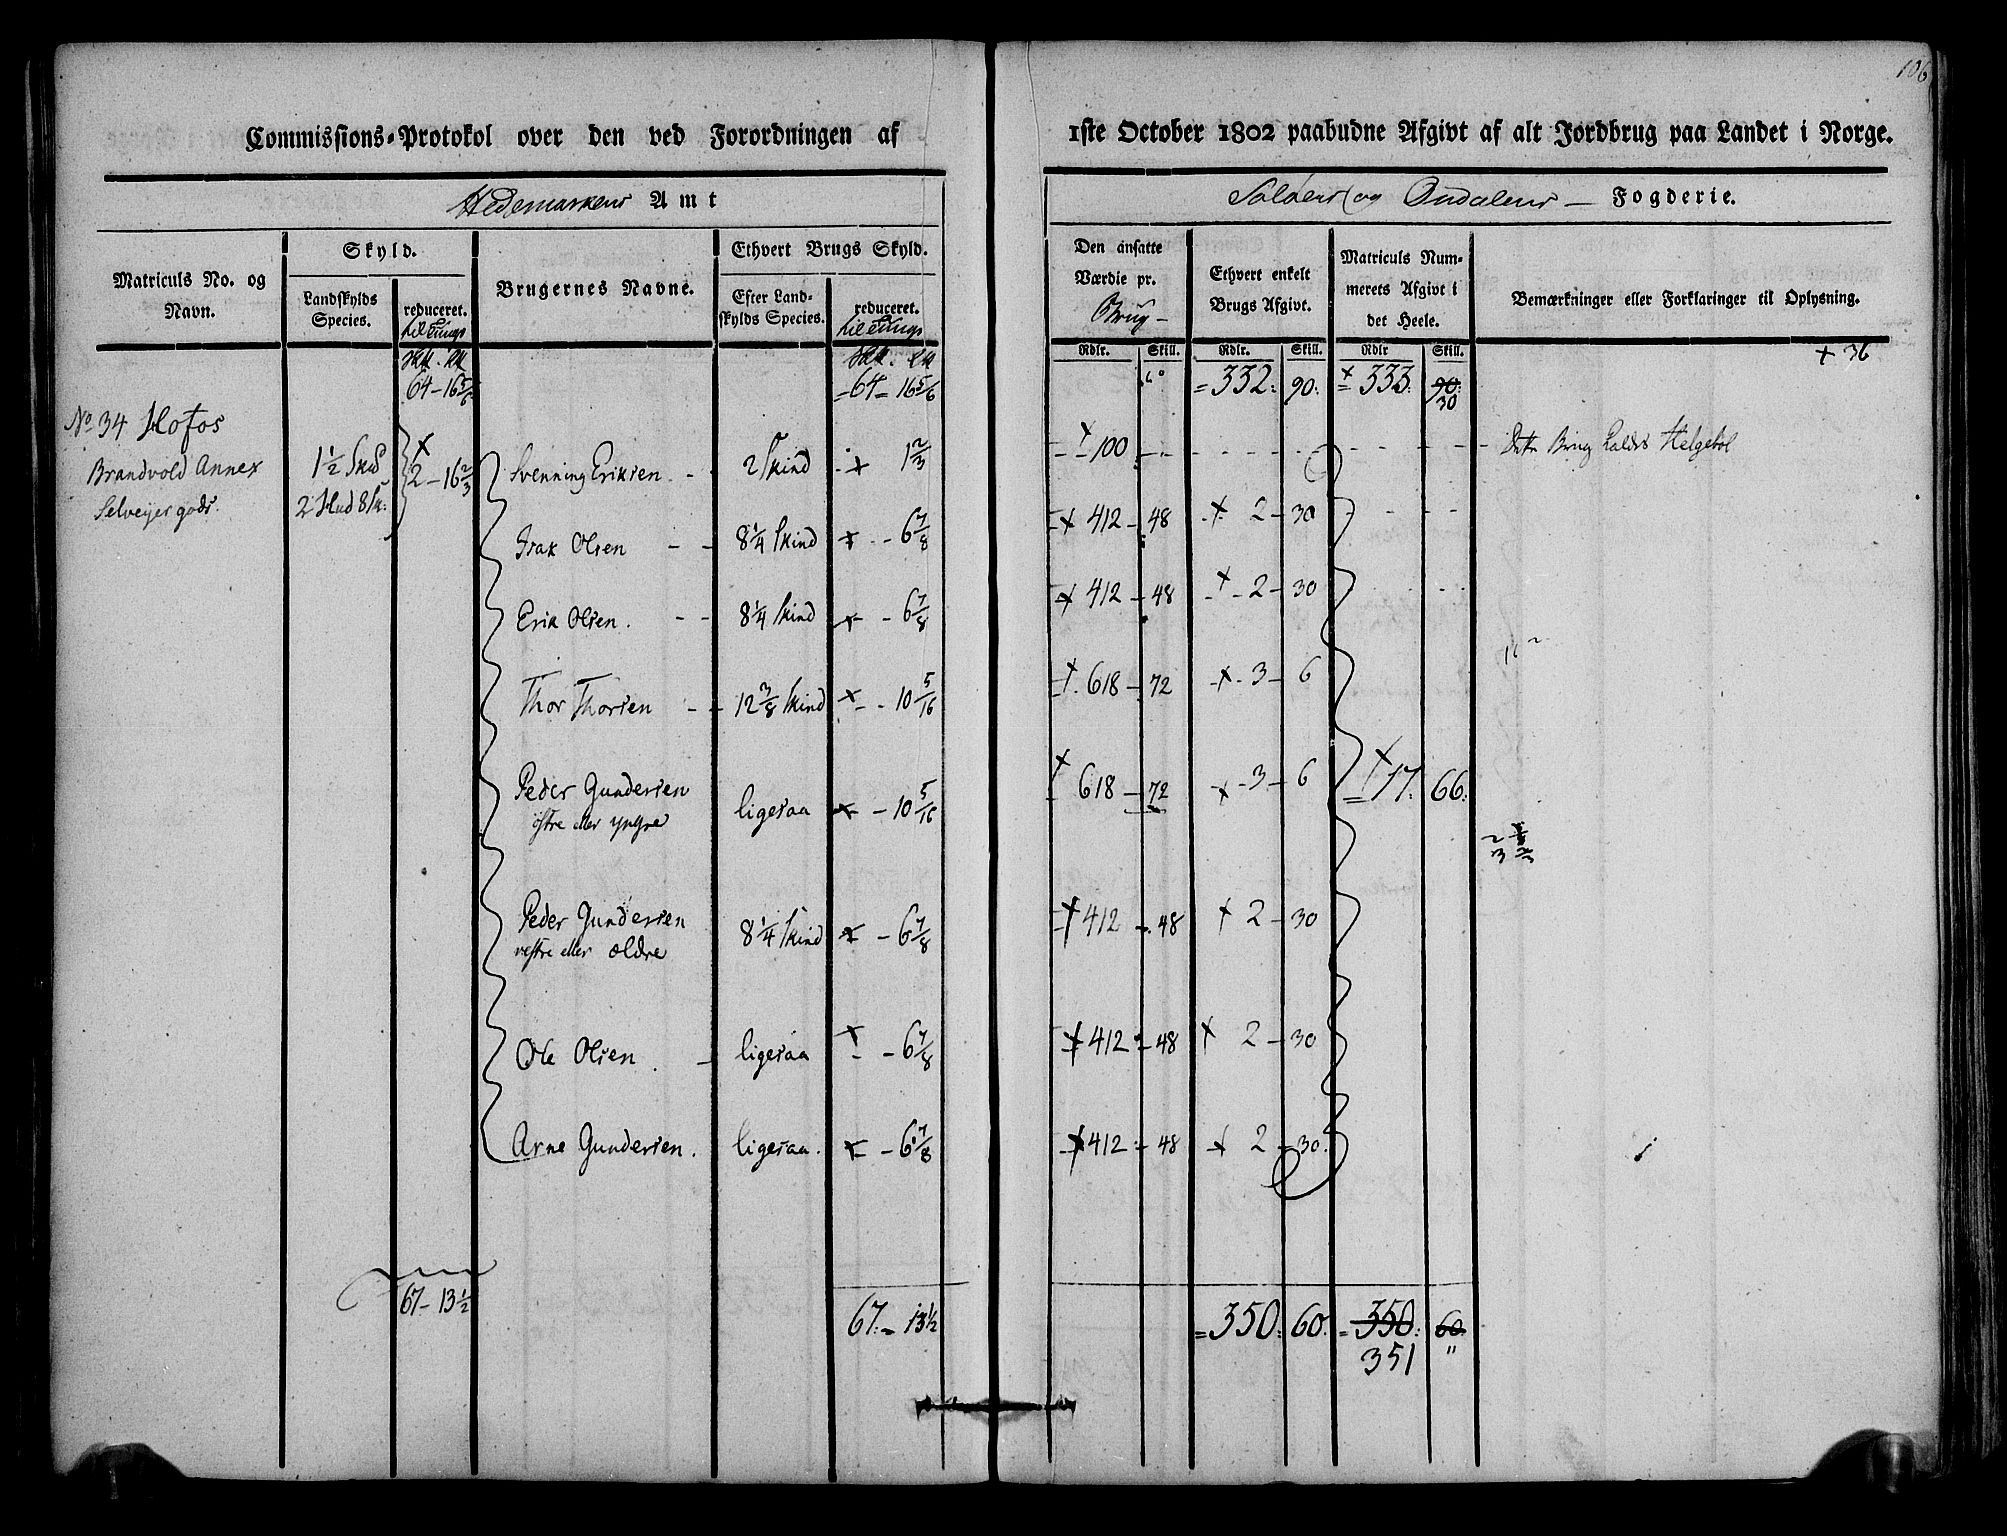 106
Commissions-Protokol over den ved Forordningen af
1ste October 1802 paabudne Afgivt af alt Jordbrug paa Landet i Norge.
Hedemarkens Amt
Soløers og Oudalens — Fogderie.
Matriculs No. og Navn.
Skyld.
Landskylds Species.
reduceret.
til Tunge
Brugernes Navne.
Ethvert Brugs Skyld.
Efter Landskylds Species.
reduceret.
til Tunge
Den ansatte Værdie pr.
Brug —
Ethvert enkelt Brugs Afgivt.
Matriculs Nummerets Afgivt i det Heele.
Bemærkninger eller Forklaringer til Oplysning.
Rdlr. Skill. Rdlr. Skill. Rdlr Skill.
+ 36
64 – 16 5/6
– 64 – 16 5/6
= 332: 90: + = 333: 90:
30
No 34 Hofos
Brandvold Annex
Selveyer gods.
1 1/2 Skp
2 Hud 8 Sk:
+
2 – 16 2/3
Svenning Eriksen. – 2 Skind + 1 2/3
+ 100 – Dette Brug kaldes Helgebol
Isak Olsen – – 8 1/4 Skind + – 6 7/8
+ 412 – 48 + 2 – 30
Erik Olsen. – – 8 1/4 Skind + – 6 7/8
+ 412 – 48 + – 2 – 30
Thor Thorsen – – 12 3/8 Skind + – 10 5/16
+ 618 – 72 + – 3 – 6
Peder Gundersen
østre eller yngre ligesaa + – 10 5/16
+ 618 – 72 + – 3 – 6 + = 17: 66:
Peder Gundersen
vestre eller ældre 8 1/4 Skind + – 6 7/8
+ 412 – 48 + 2 – 30
Ole Olsen – ligesaa + – 6 7/8
+ 412 – 48 + 2 – 30
Arne Gundersen. ligesaa. + – 6 7/8
+ 412 – 48 + 2 – 30.
67 – 13 1/2
67: – 13 1/2
= 350: 60. = 350: 60
351 "